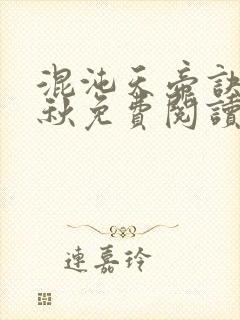 混沌天帝訣
秋免費閱讀
連嘉玲